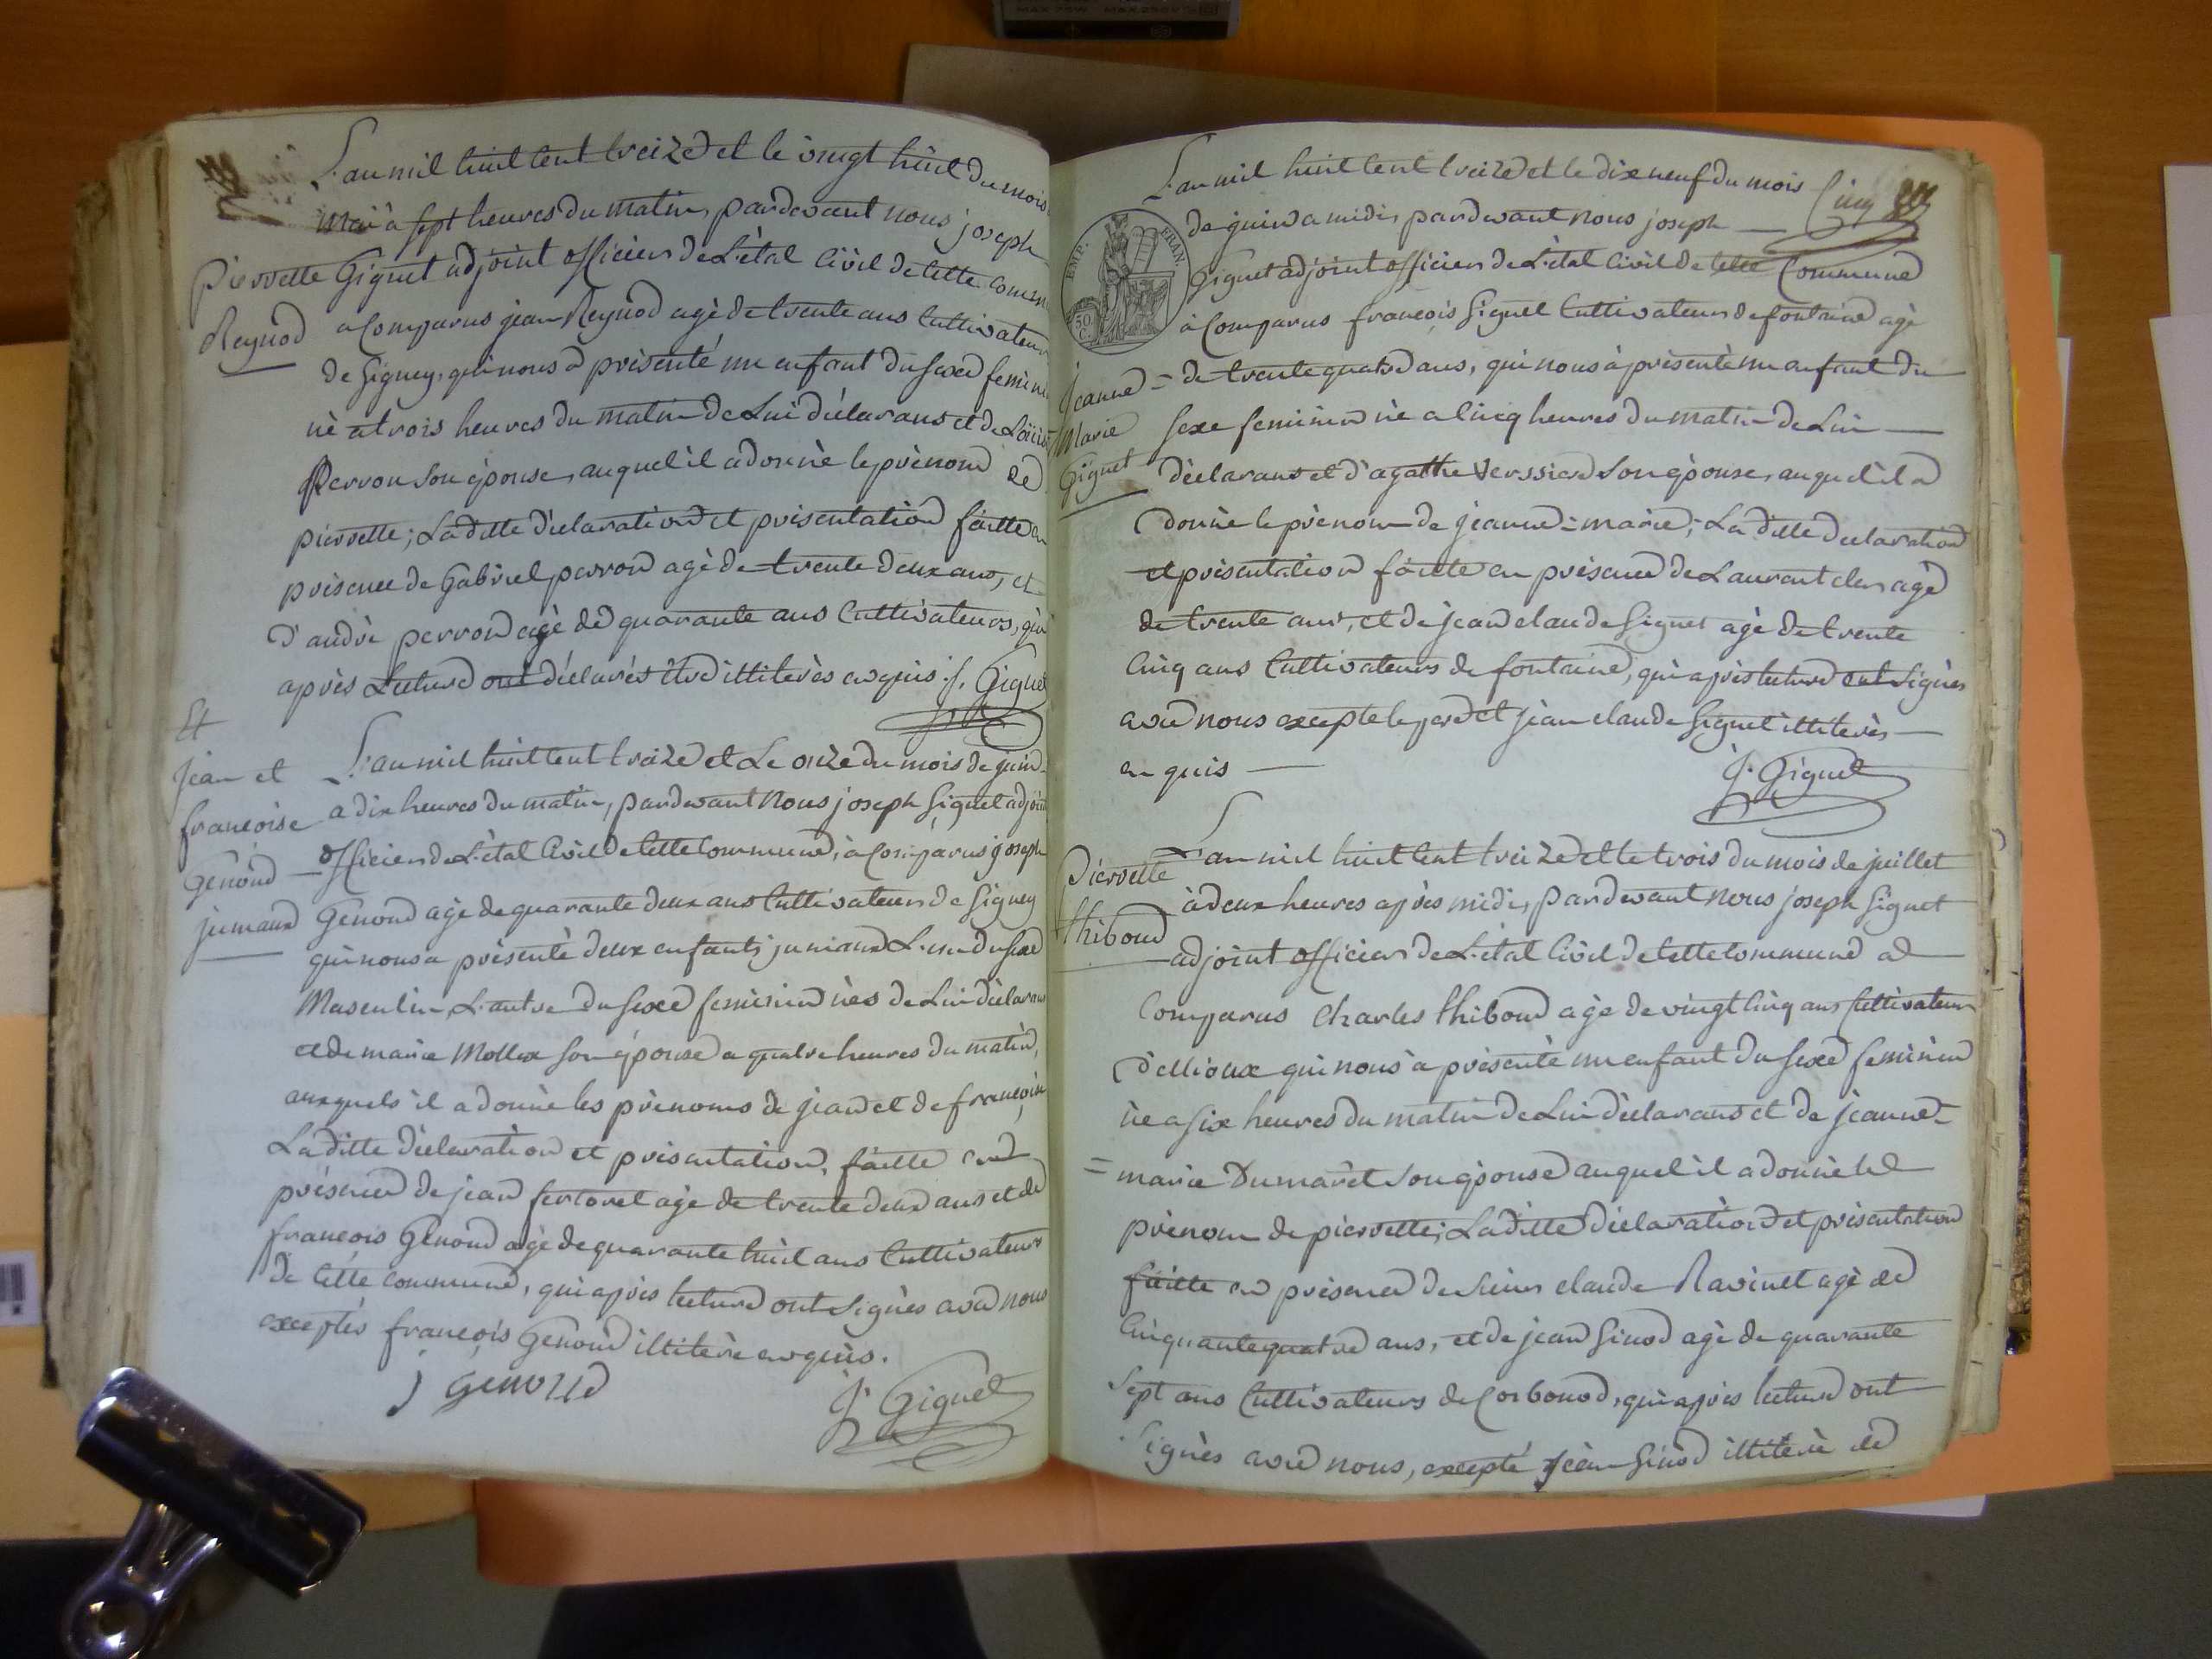 L'an mil huit cent treize et le vingt huit du mois
Mai à sept heures du matin, pardevant nous joseph
Pierrette Giguet adjoint officier de L'état Civil de Cette comm
Reynod a Comparus jean Reynod agè de trente ans Cultivateur
de Gigney, qui nous a présenté un enfant du sexe femini
nè a trois heures du matin de Lui déclarans et de Loüise
Perron son épouse, auquel il a donnè le prènom de
pierrette; La ditte déclaration et présentation faitte en
présence de Gabriel perron agè de trente deux ans, et
d'andrè perron agè de quarante ans Cultivateurs, qui
après Lecture ont déclarés être illiterès enquis. J. Giguet
Et
Jean et
francoise
Genoud
jumaux
L'an mil huit cent treize et Le onze du mois de juin
a dix heures du matin, pardevant Nous joseph Giguet adjoint
officier de L'état Civil de Cette Commune, à Comparus joseph
Genoud age de quarante deux ans Cultivateur de Gigney
qui nous a présentè deux enfants jumaux L'un du sexe
Masculin, L'autre du sexe feminin nès de Lui déclarans
et de marie Mollex son épouse a quatre heures du matin,
auxquels il a donnè les prènoms de jean et de françoise
La ditte déclaration et présentation, faitte en
présence de jean fertoret agè de trente deux ans et de
francois Genoud agè de quarante huit ans Cultivateurs
de Cette Commune, qui après lecture ont signès avec nous
exceptés françois Genoud illiterè enquis.
J Genoud J. Giguet
L'an mil huit cent treize et le dix neuf du mois Cinq
de juin a midi, pardevant nous joseph
EMP. FRAN.
50 C.
Giguet adjoint officier de L'état Civil de Cette Commune
à Comparus françois Giguet Cultivateur de fontaine agè
Jeanne =
Marie
Giguet
de trente quatre ans, qui nous à présentè un enfant du
sexe feminin nè a Cinq heures du matin de Lui
déclarans et d'agathe son èpouse, auquel il a
donnè le prènom de jeanne = marie; La ditte declaration
et présentation faitte en présence de Laurant clerc agè
de trente ans, et de jean claude Giguet agè de trente
Cinq ans Cultivateurs de fontaine, qui après lecture ont signès
avec nous excepte le pere et jean claude Giguet illiterès
en quis J. Giguet
Pierrette
thiboud
L'an mil huit cent treize et le trois du mois de juillet
à deux heures après midi, pardevant Nous joseph Giguet
adjoint officier de L'état Civil de Cette Commune a
Comparus Charles thiboud agè de vingt Cinq ans Cultivateur
d'ellioux qui nous a présentè un enfant du sexe feminin
nè a six heures du matin de Lui déclarans et de jeanne =
= marie Dumarêt son èpouse auquel il a donnè le
prènom de pierrette; La ditte déclaration et présentation
faitte en présence de sieur claude Ravinet agè de
Cinquante quatre ans, et de jean Ginod agè de quarante
sept ans Cultivateurs de Corbonod, qui après lecture ont
signès avec nous, excepté jean Ginod illiterè de